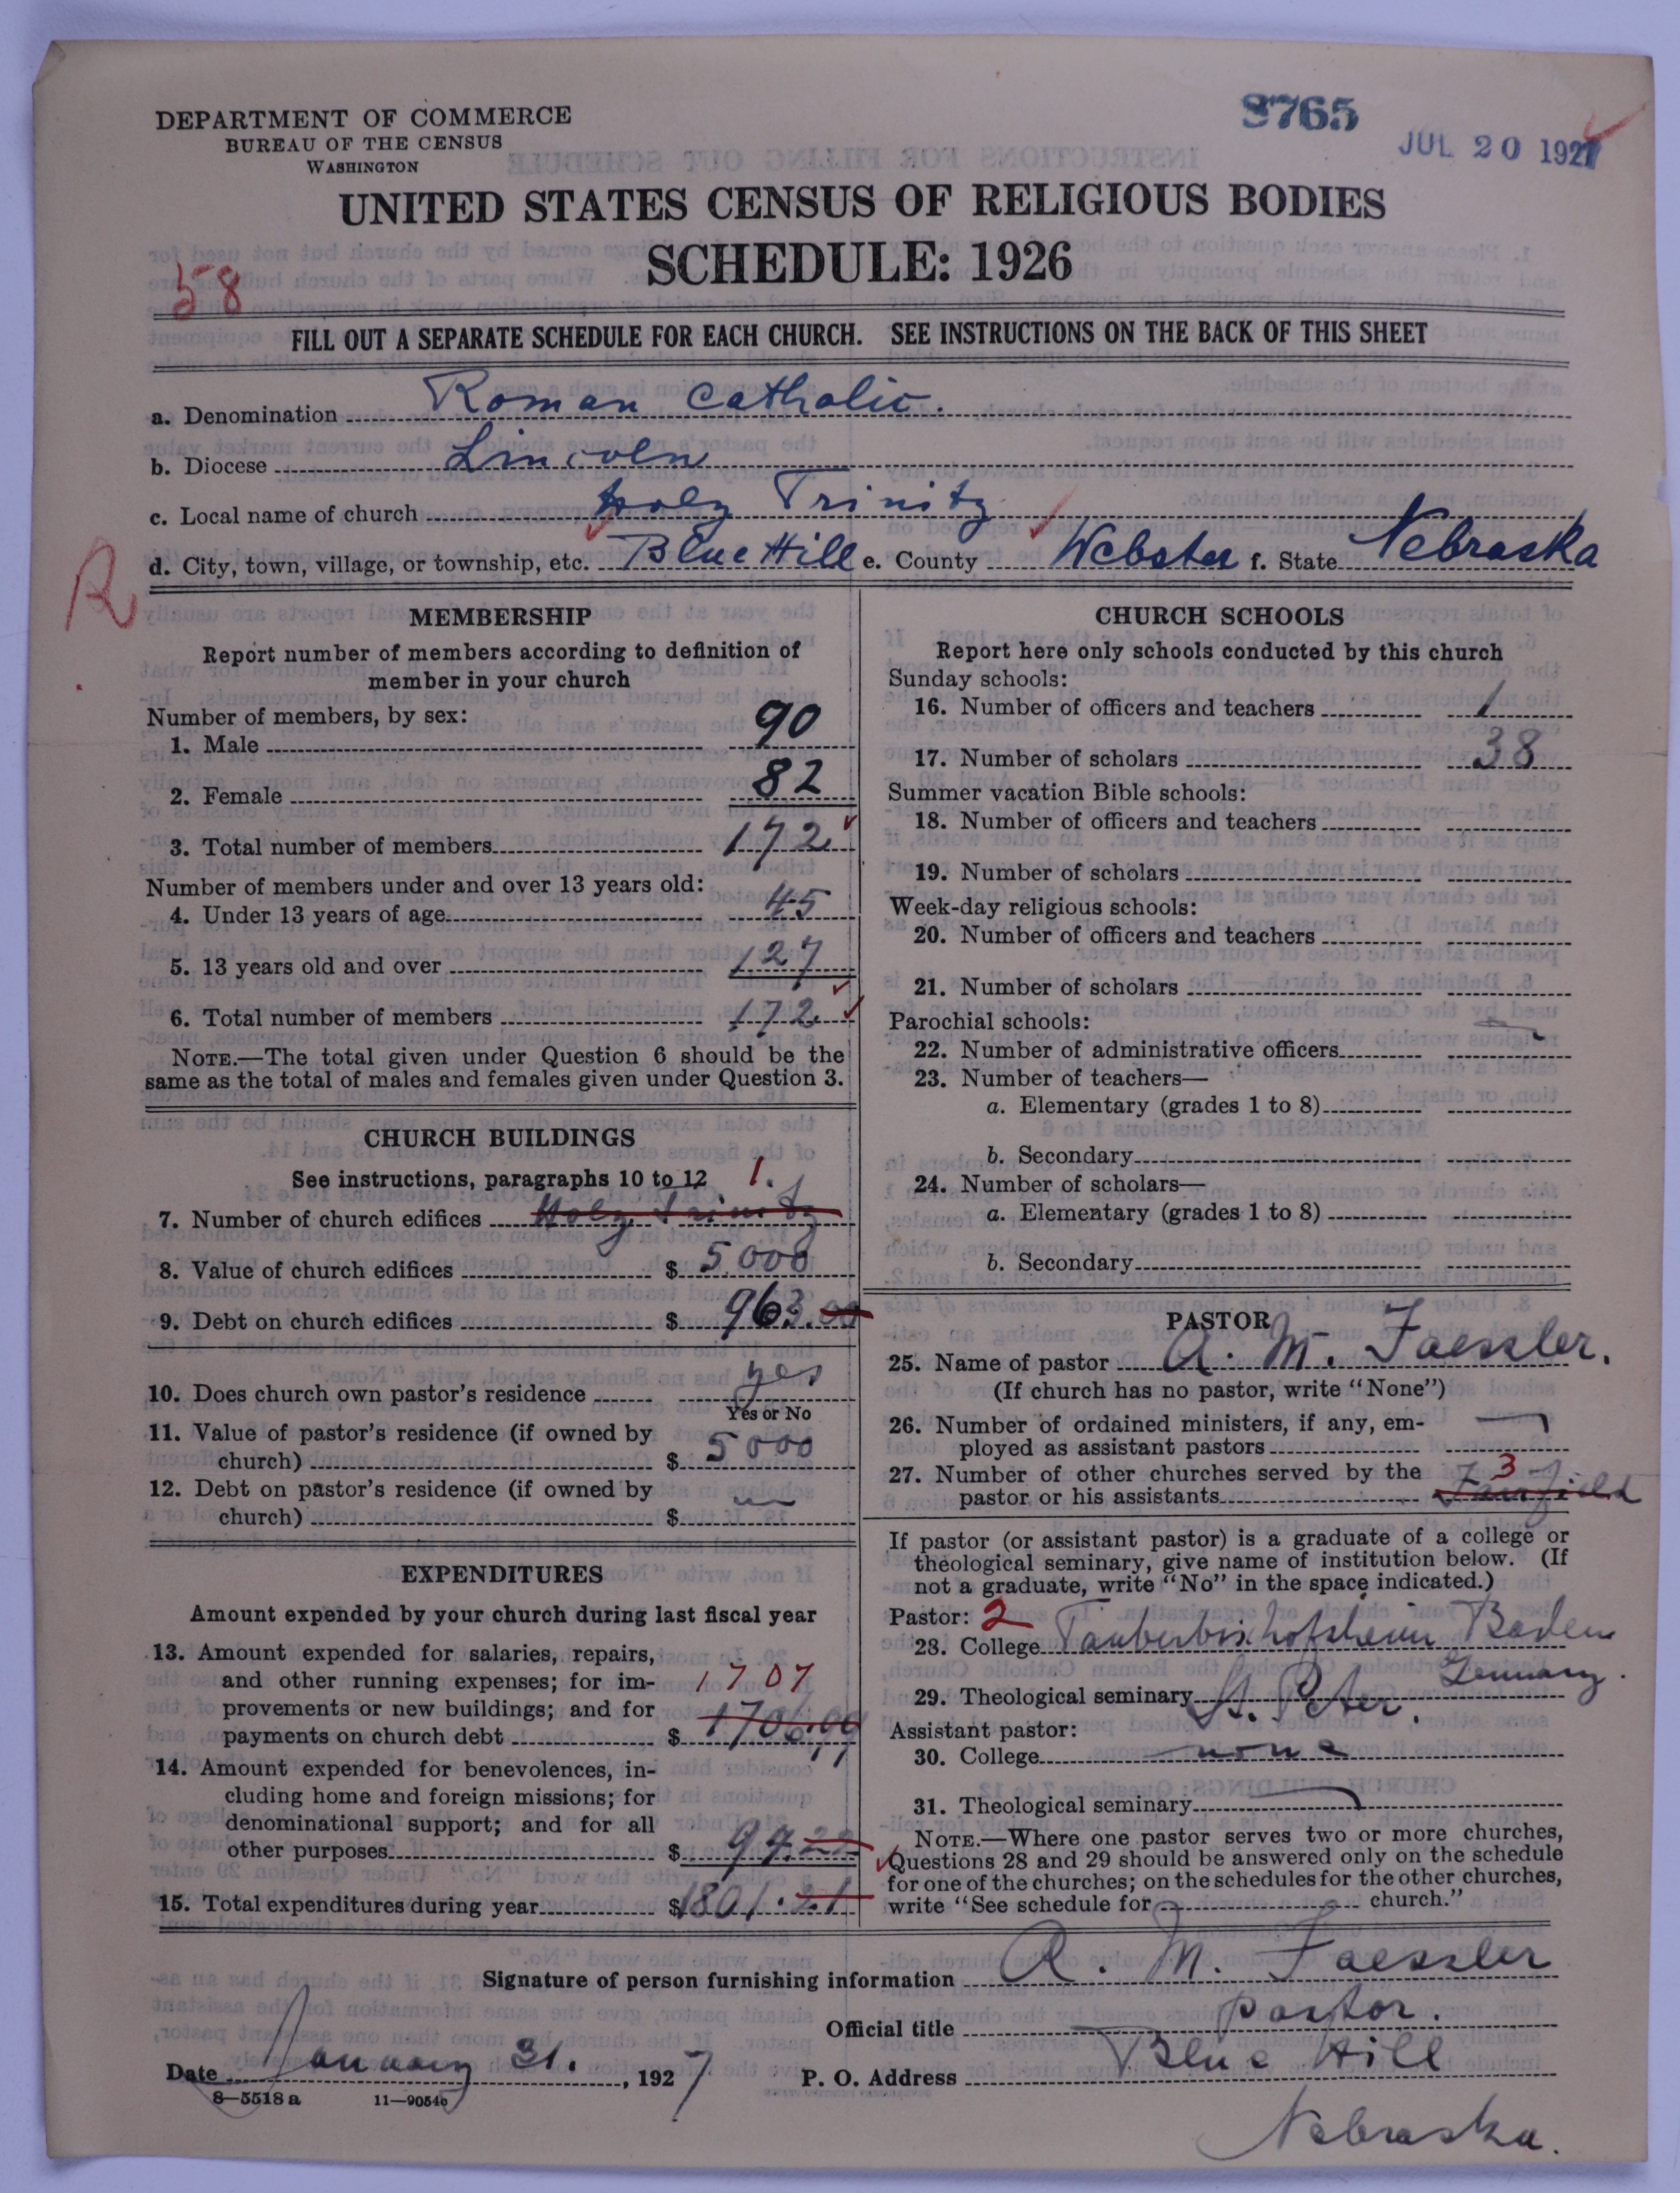 DEPARTMENT OF COMMERCE
BUREAU OF THE CENSUS
WASHINGTON
8765
JUL 20 1927
UNITED STATES CENSUS OF RELIGIOUS BODIES
SCHEDULE: 1926
58
FILL OUT A SEPARATE SCHEDULE FOR EACH CHURCH. SEE INSTRUCTIONS ON THE BACK OF THIS SHEET
a. Denomination Roman Catholic.
b. Diocese Lincoln
c. Local name of church Holy Trinity
d. City, town, village, or township, etc. Blue Hill e. County Webster f. State Nebraska
R
MEMBERSHIP
Report number of members according to definition of
member in your church
Number of members, by sex:
1. Male 90
2. Female 82
3. Total number of members 172
Number of members under and over 13 years old:
4. Under 13 years of age 45
5. 13 years old and over 127
6. Total number of members 172
NOTE.—The total given under Question 6 should be the
same as the total of males and females given under Question 3.
CHURCH BUILDINGS
See instructions, paragraphs 10 to 12
1.
7. Number of church edifices Holy Trinity
8. Value of church edifices $ 5000
9. Debt on church edifices $ 963.00
10. Does church own pastor's residence yes
Yes or No
11. Value of pastor's residence (if owned by
church) $ 5000
12. Debt on pastor's residence (if owned by
church) $ —
EXPENDITURES
Amount expended by your church during last fiscal year
13. Amount expended for salaries, repairs,
and other running expenses; for im- 1707
provements or new buildings; and for
payments on church debt $ 1706.99
14. Amount expended for benevolences, in-
cluding home and foreign missions; for
denominational support; and for all
other purposes $ 94.22
15. Total expenditures during year $1801.21
CHURCH SCHOOLS
Report here only schools conducted by this church
Sunday schools:
16. Number of officers and teachers 1
17. Number of scholars 38
Summer vacation Bible schools:
18. Number of officers and teachers
19. Number of scholars
Week-day religious schools:
20. Number of officers and teachers
21. Number of scholars
Parochial schools:
22. Number of administrative officers —
23. Number of teachers—
a. Elementary (grades 1 to 8)
b. Secondary
24. Number of scholars—
a. Elementary (grades 1 to 8)
b. Secondary
PASTOR
25. Name of pastor A. M. Faessler.
(If church has no pastor, write "None")
26. Number of ordained ministers, if any, em-
ployed as assistant pastors —
27. Number of other churches served by the 3
pastor or his assistants Fairfield
If pastor (or assistant pastor) is a graduate of a college or
theological seminary, give name of institution below. (If
not a graduate, write "No" in the space indicated.)
Pastor: 2
28. College Tauberbischofsheim Baden
Germany.
29. Theological seminary St. Peter.
Assistant pastor:
30. College none
31. Theological seminary —
NOTE.—Where one pastor serves two or more churches,
Questions 28 and 29 should be answered only on the schedule
for one of the churches; on the schedules for the other churches,
write "See schedule for church."
Signature of person furnishing information A. M. Faessler
Official title pastor.
Date January 31. , 1927
P. O. Address Blue Hill
Nebraska.
8—5518 a 11—9054b